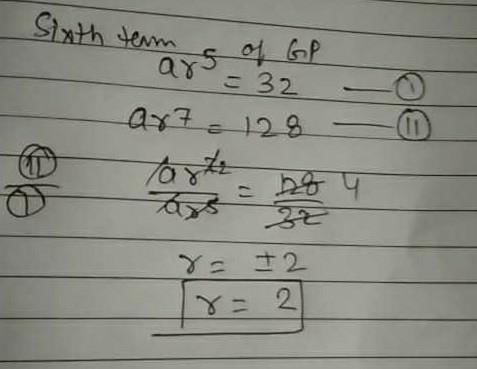 Sixth term of GP
ar^5 = 32 — I
ar^7 = 128 — II
II/I ar^7 2/ar^5 = 128/32 4
r = ±2
r = 2